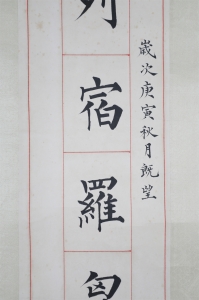 歲次庚寅秋月既望
列宿羅匈